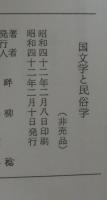 国文学と民俗学
（非売品）
昭和四十二年二月八日印刷
昭和四十二年二月十日発行
著者
発行人 畔柳